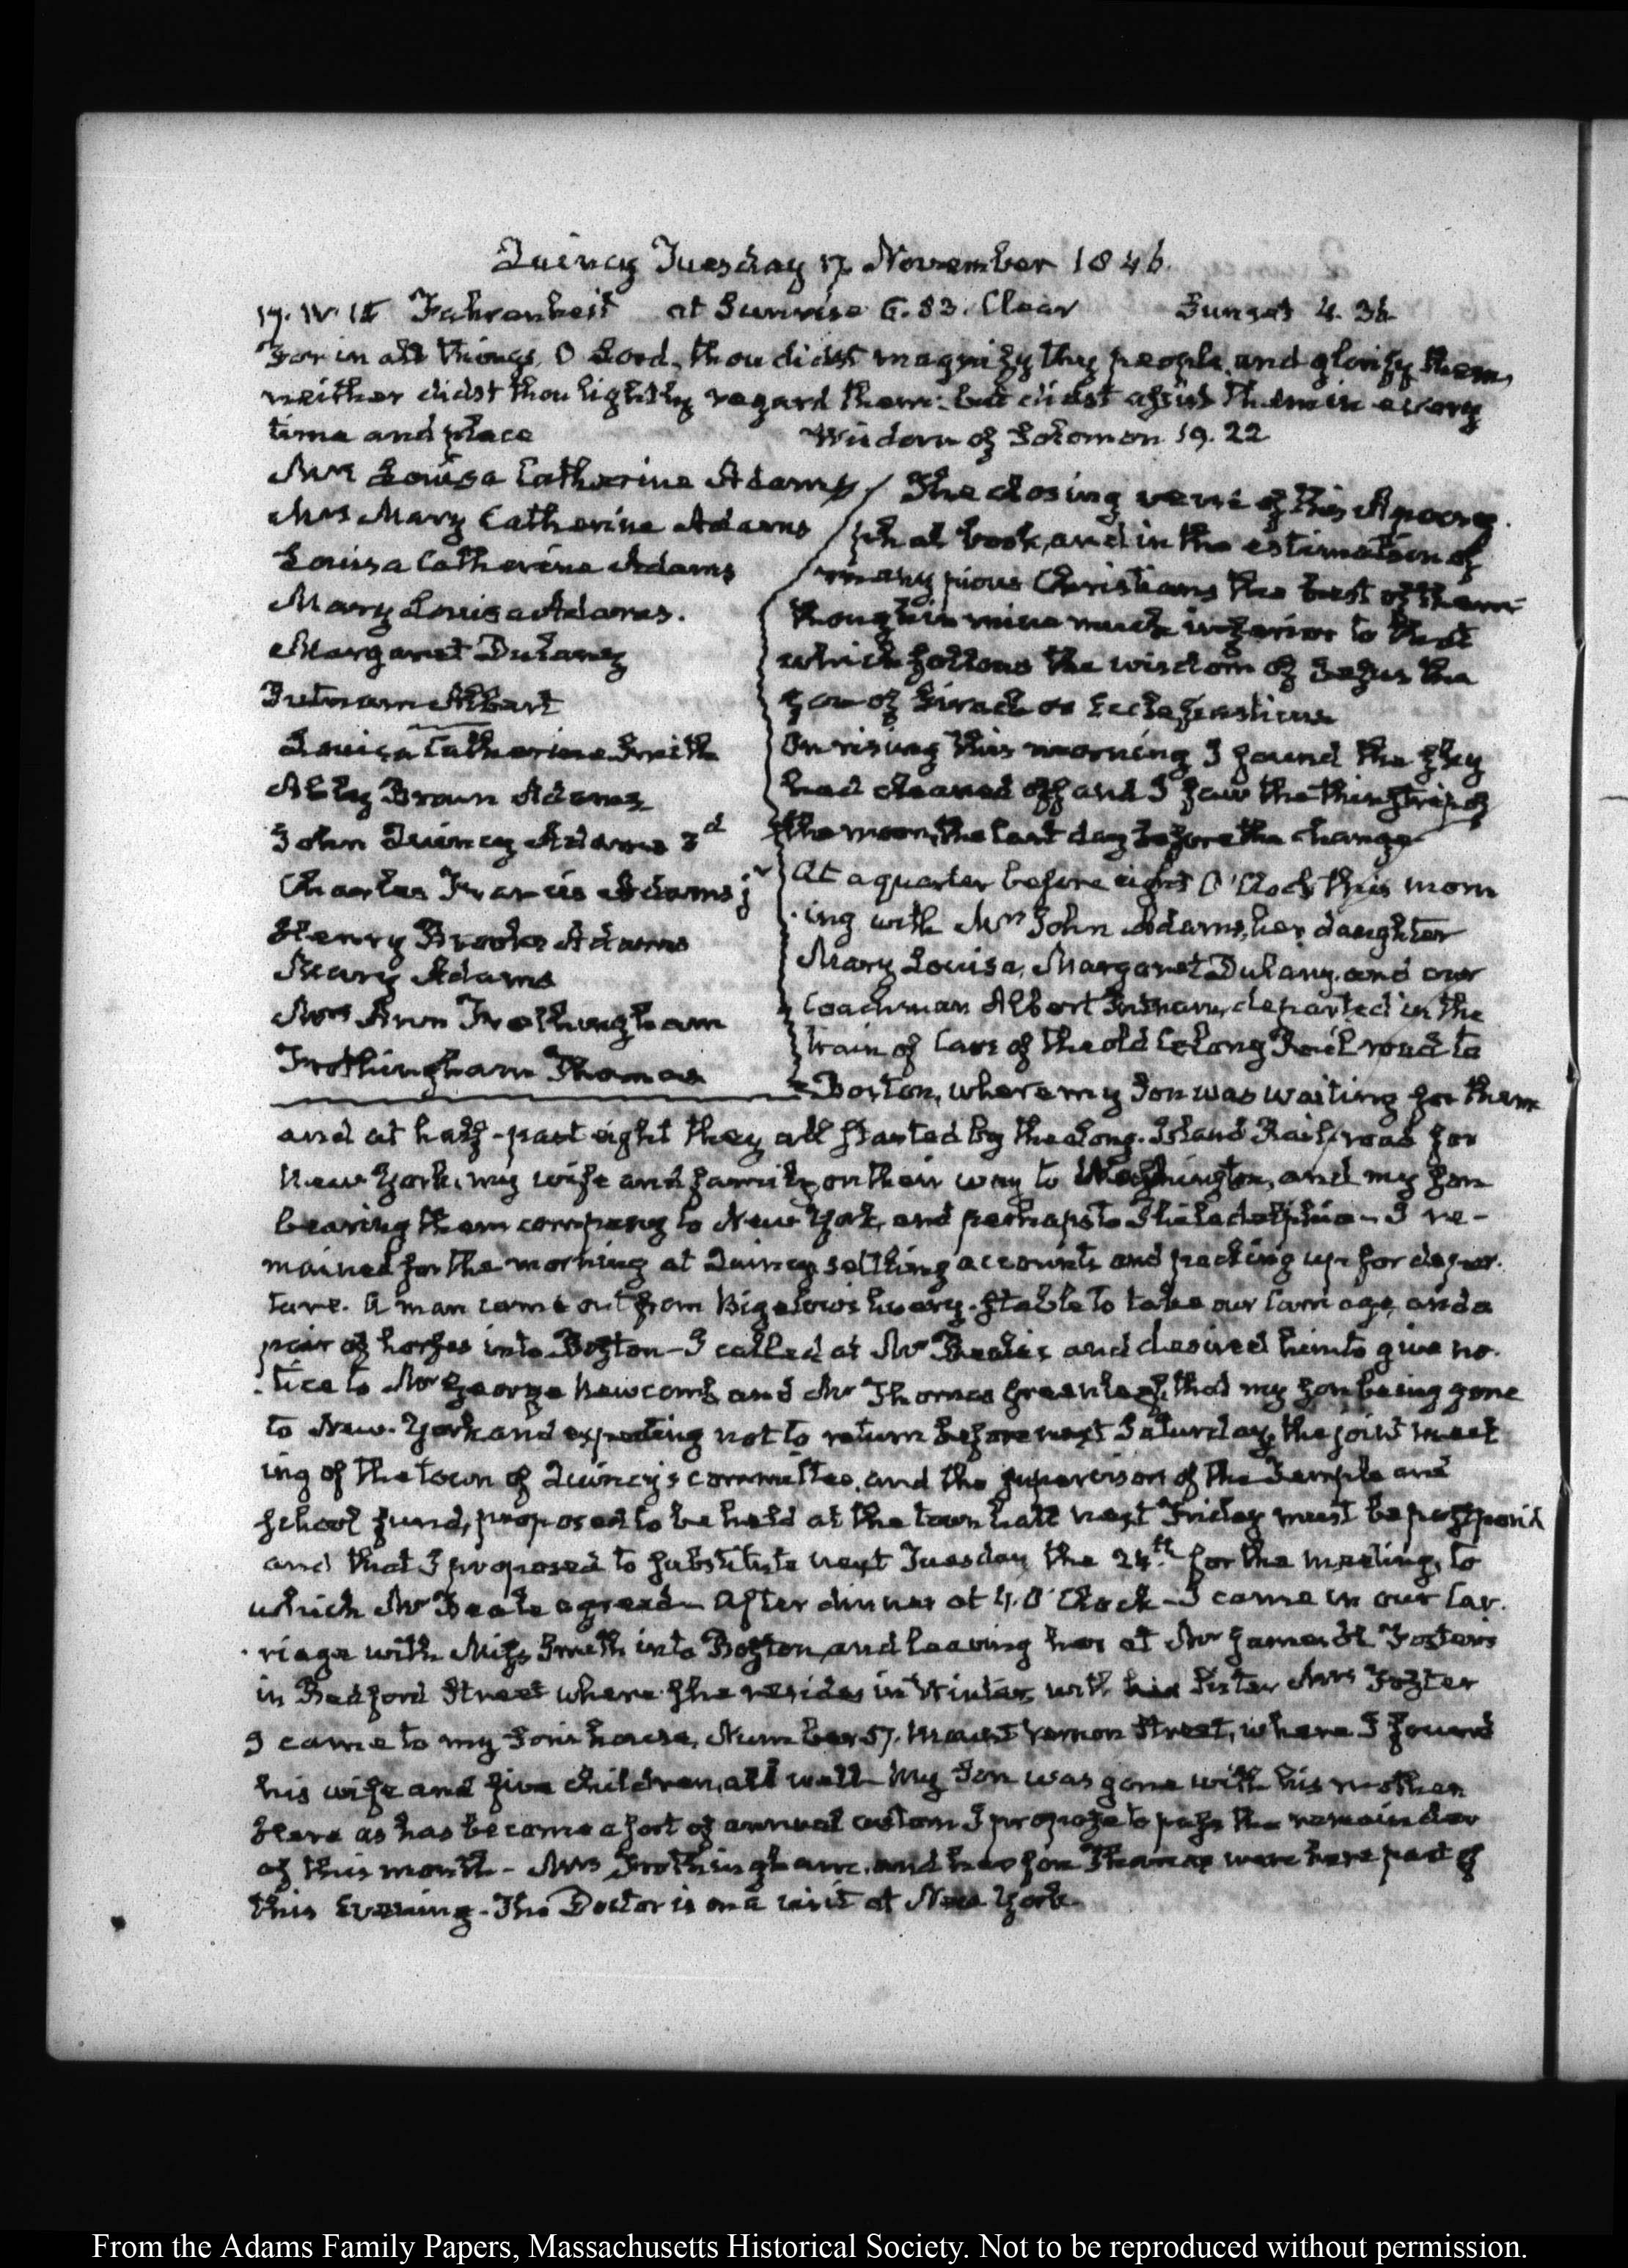 Quincy Tuesday 17 November 1846.
17. IV. 15 Fahrenheit at Sunrise 6.53. Clear Sunset 4.36
For in all things, O Lord, thou didst magnify thy people, and glorify them,
neither didst thou lightly regard them: but didst assist them in every
time and place Wisdom of Solomon 19. 22
Mrs Louisa Catherine Adams
Mrs Mary Catherine Adams
Louisa Catherine Adams
Mary Louisa Adams.
Margaret Dulany
Putnam Albert
Louisa Catherine Smith
Abby Brown Adams
John Quincy Adams 2d
Charles Francis Adams jr
Henry Brooks Adams
Mary Adams
Mrs Ann Frothingham
Frothingham Thomas
The closing verse of this Apocry
phal book, and in the estimation of
many pious Christians the best of them
though in mine much inferior to that
which follows the wisdom of Jesus the
son of Sirach or Ecclesiasticus
On rising this morning I found the sky
had cleared off and I saw the thin strip of
the moon, the last day before the change
At a quarter before eight O'Clock this morn
ing with Mrs John Adams, her daughter
Mary Louisa, Margaret Dulany, and our
Coachman Albert Putnam, departed in the
train of Cars of the old Colony Rail road to
Boston, where my Son was waiting for them
and at half-past eight they all started by the Long-Island Rail road for
New York, my wife and family on their way to Washington, and my son
bearing them company to New York, and perhaps to Philadelphia - I re-
mained for the morning at Quincy settling accounts and packing up for depar-
ture. A man came out from Bigelow's livery-stable to take our Carriage, and a
pair of horses into Boston - I called at Mr Beale's and desired him to give no-
tice to Mr George Newcomb and Mr Thomas Greenleaf, that my son being gone
to New-York and expecting not to return before next Saturday, the joint meet
ing of the town of Quincy's committee, and the supervisors of the Temple and
school fund, proposed to be held at the town hall next Friday must be postponed
and that I proposed to substitute next Tuesday the 24th for the meeting, to
which Mr Beale agreed - After dinner at 4. O'Clock - I came in our Car-
riage with Miss Smith into Boston, and leaving her at Mr James H. Foster's
in Bedford Street where she resides in Winter with her Sister Mrs Foster
I came to my Son's house, Number 57. Mount Vernon Street, where I found
his wife and five children, all well - My Son was gone with his mother
Here as has become a sort of annual custom I propose to pass the remainder
of this month - Mrs Frothingham, and her son Thomas were here part of
this Evening - The Doctor is on a visit at New York.